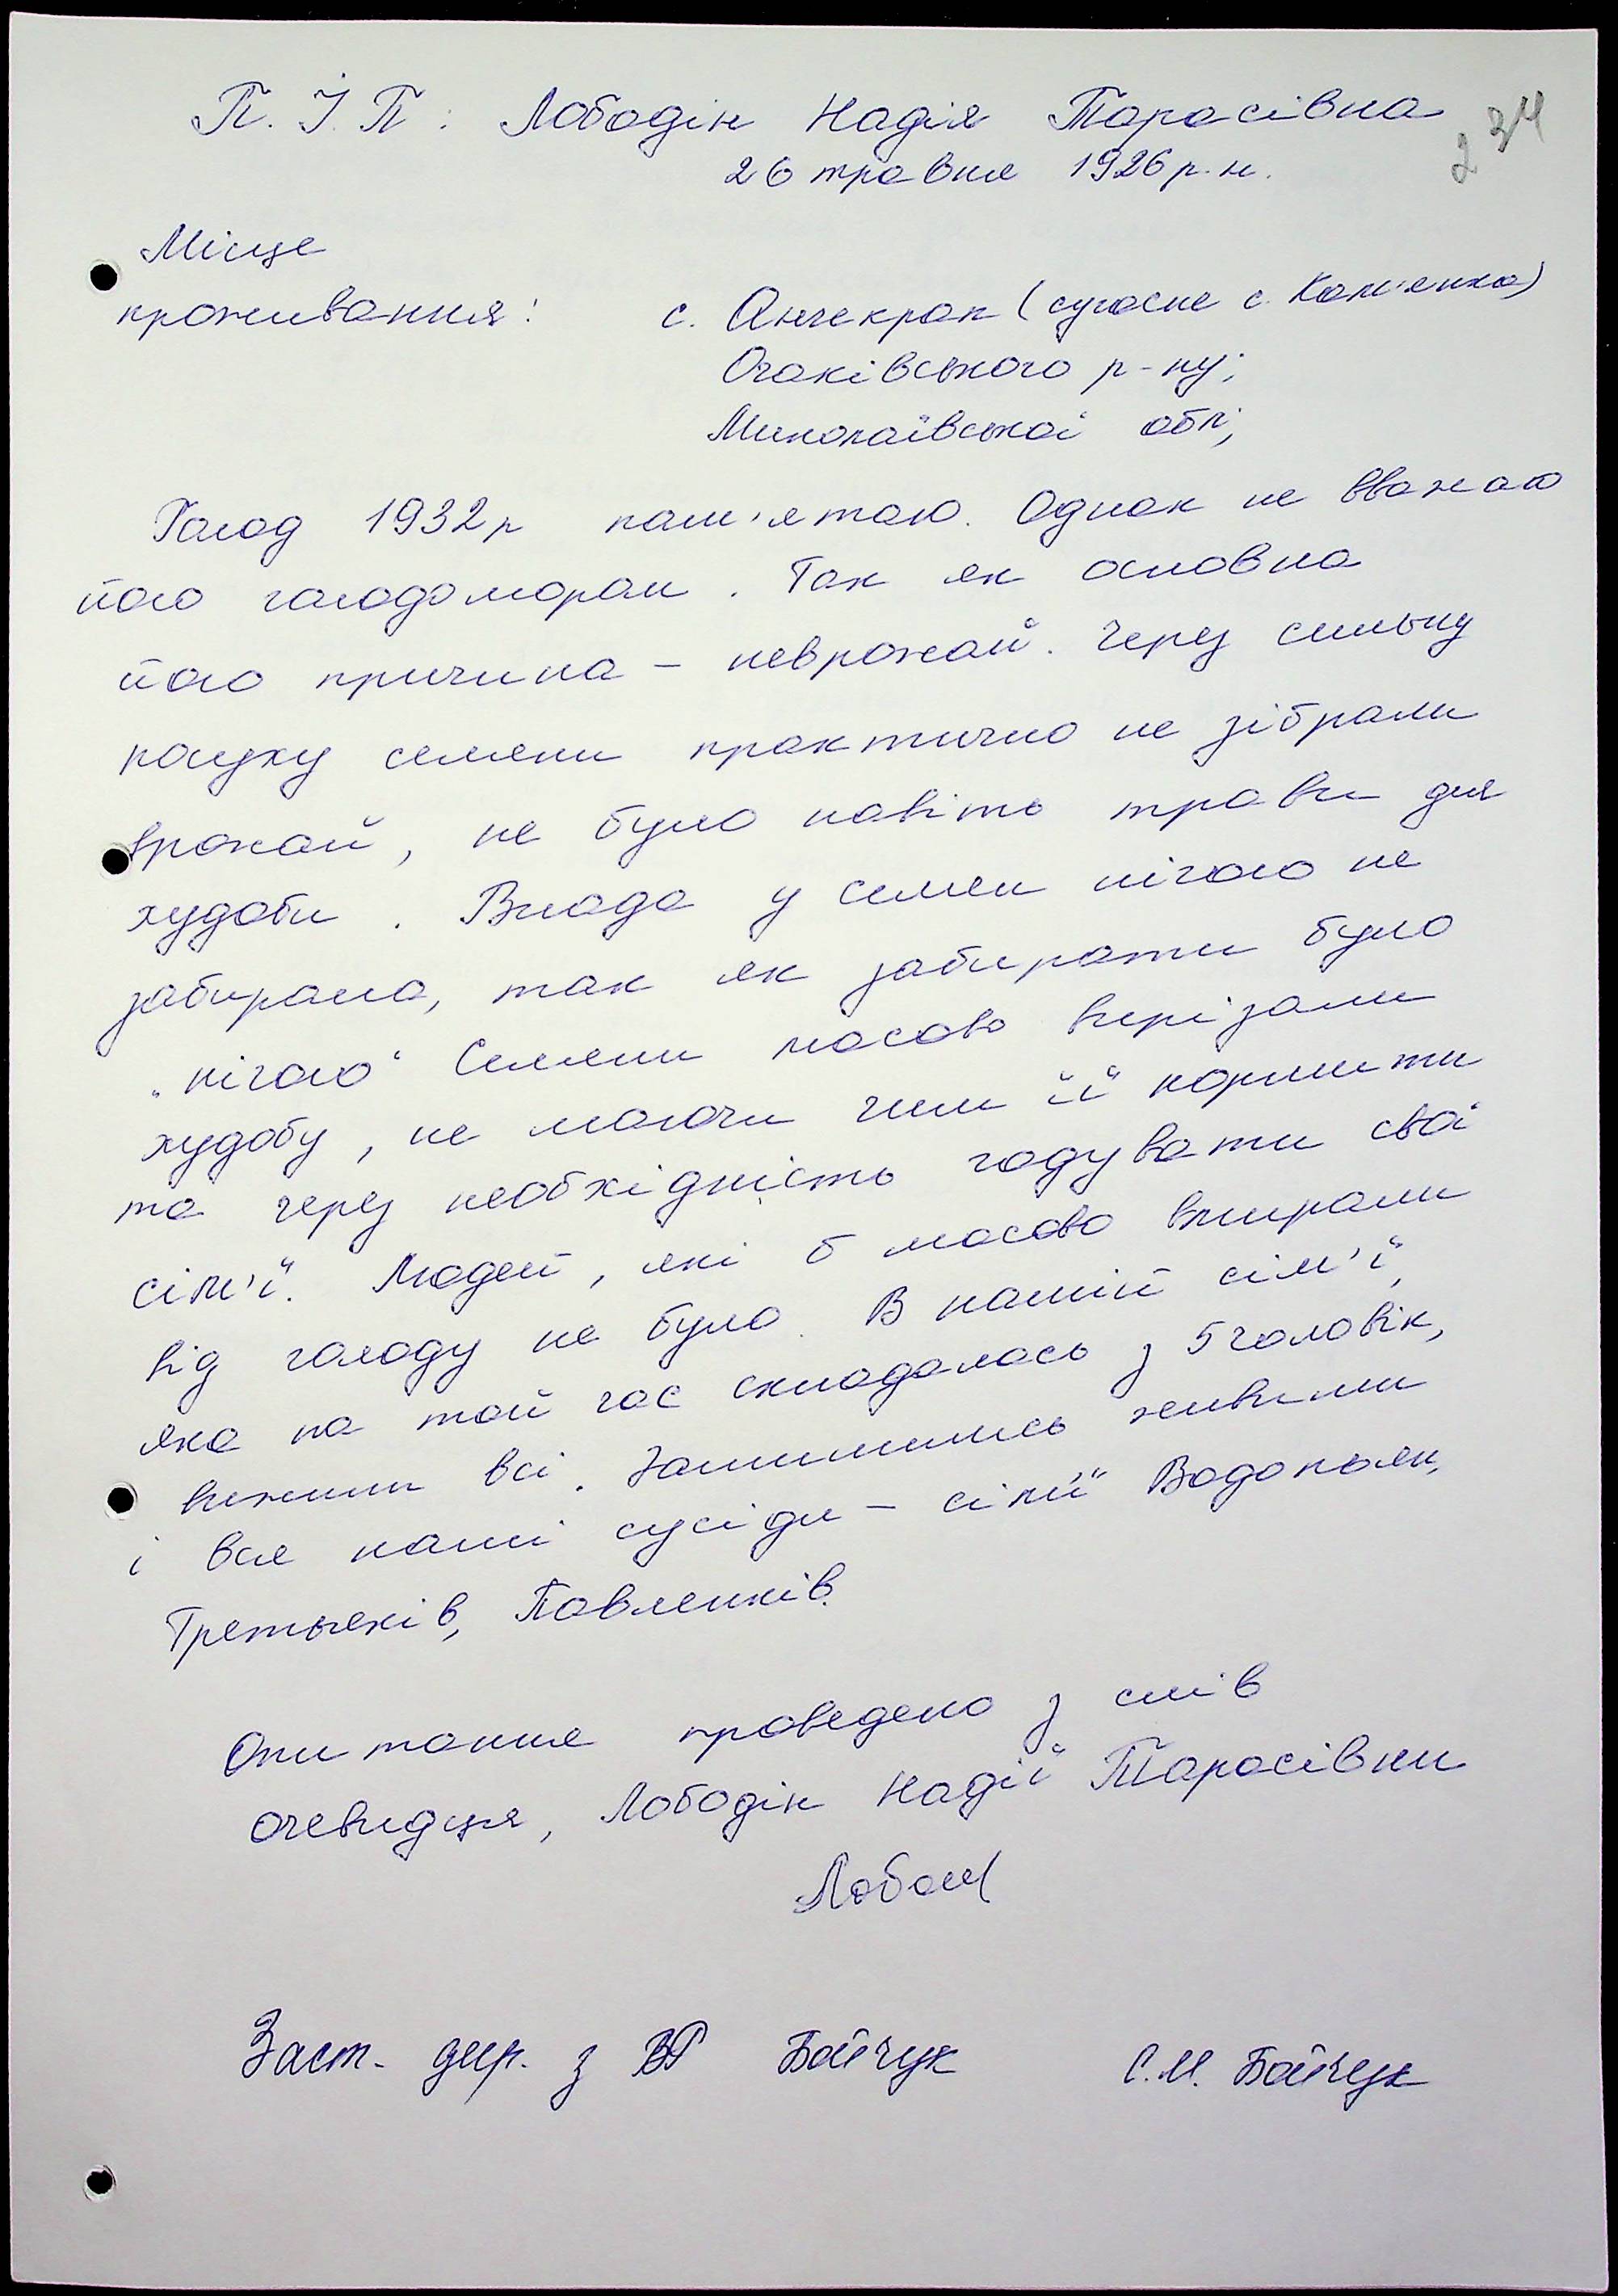 П.І.П: Лободін Надія Тарасівна
234
26 травня 1926 р.н.
Місце
проживання: с. Анчекрак (сучасне с. Кам'янка)
Очаківського р-ну;
Миколаївської обл;
Голод 1932 р пам'ятаю. Однак не вважаю
його голодомором. Так як основна
його причина – неврожай. Через сильну
посуху селяни практично не зібрали
врожай, не було навіть трави для
худоби. Влада у селян нічого не
забирала, так як забирати було
„нічого“ Селяни масово вирізали
худобу, не маючи чим її кормити
та через необхідність годувати свої
сім'ї. Людей, які б масово вмирали
від голоду не було. В нашій сім'ї,
яка на той час складалась з 5 чоловік,
вижили всі. Залишились живими
і вся наші сусіди – сім'ї Водопьян,
Третьяків, Павленків.
Опитання проведено з слів
очевидця, Лободін Надії Тарасівни
Заст. дир. з ВР Бойчук С.М. Бойчук